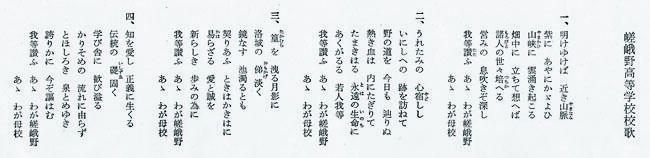 嵯峨野高等学校校歌
一、明けゆけば 近き山脈
紫に あやにかゞよひ
山峡に 雲湧き起こる
畑中に 立ちて想へば
諸人の世々培へる
営みの 息吹きぞ深し
我等讃ふ あゝ わが嵯峨野
我等讃ふ あゝ わが母校
二、うれたみの 心宿しし
いにしへの 跡を訪ねて
野の道を 今日も 辿りぬ
熱き血は 内にたぎりて
たまきはる 永遠の生命に
あくがるる 若人我等
我等讃ふ あゝ わが嵯峨野
我等讃ふ あゝ わが母校
三、篁を 洩る月影に
洛城の 俤淡く
鏡なす 池濁るとも
契りあふ ときはかきはに
易らざる 愛と誠を
新らしき 歩みの為に
我等讃ふ あゝ わが嵯峨野
我等讃ふ あゝ わが母校
四、知を愛し 正義に生くる
伝統の 礎固く
学び舎に 歓び溢る
かりそめの 流れに由らず
とほしろき 泉とめゆき
誇りかに 今ぞ謳はむ
我等讃ふ あゝ わが嵯峨野
我等讃ふ あゝ わが母校